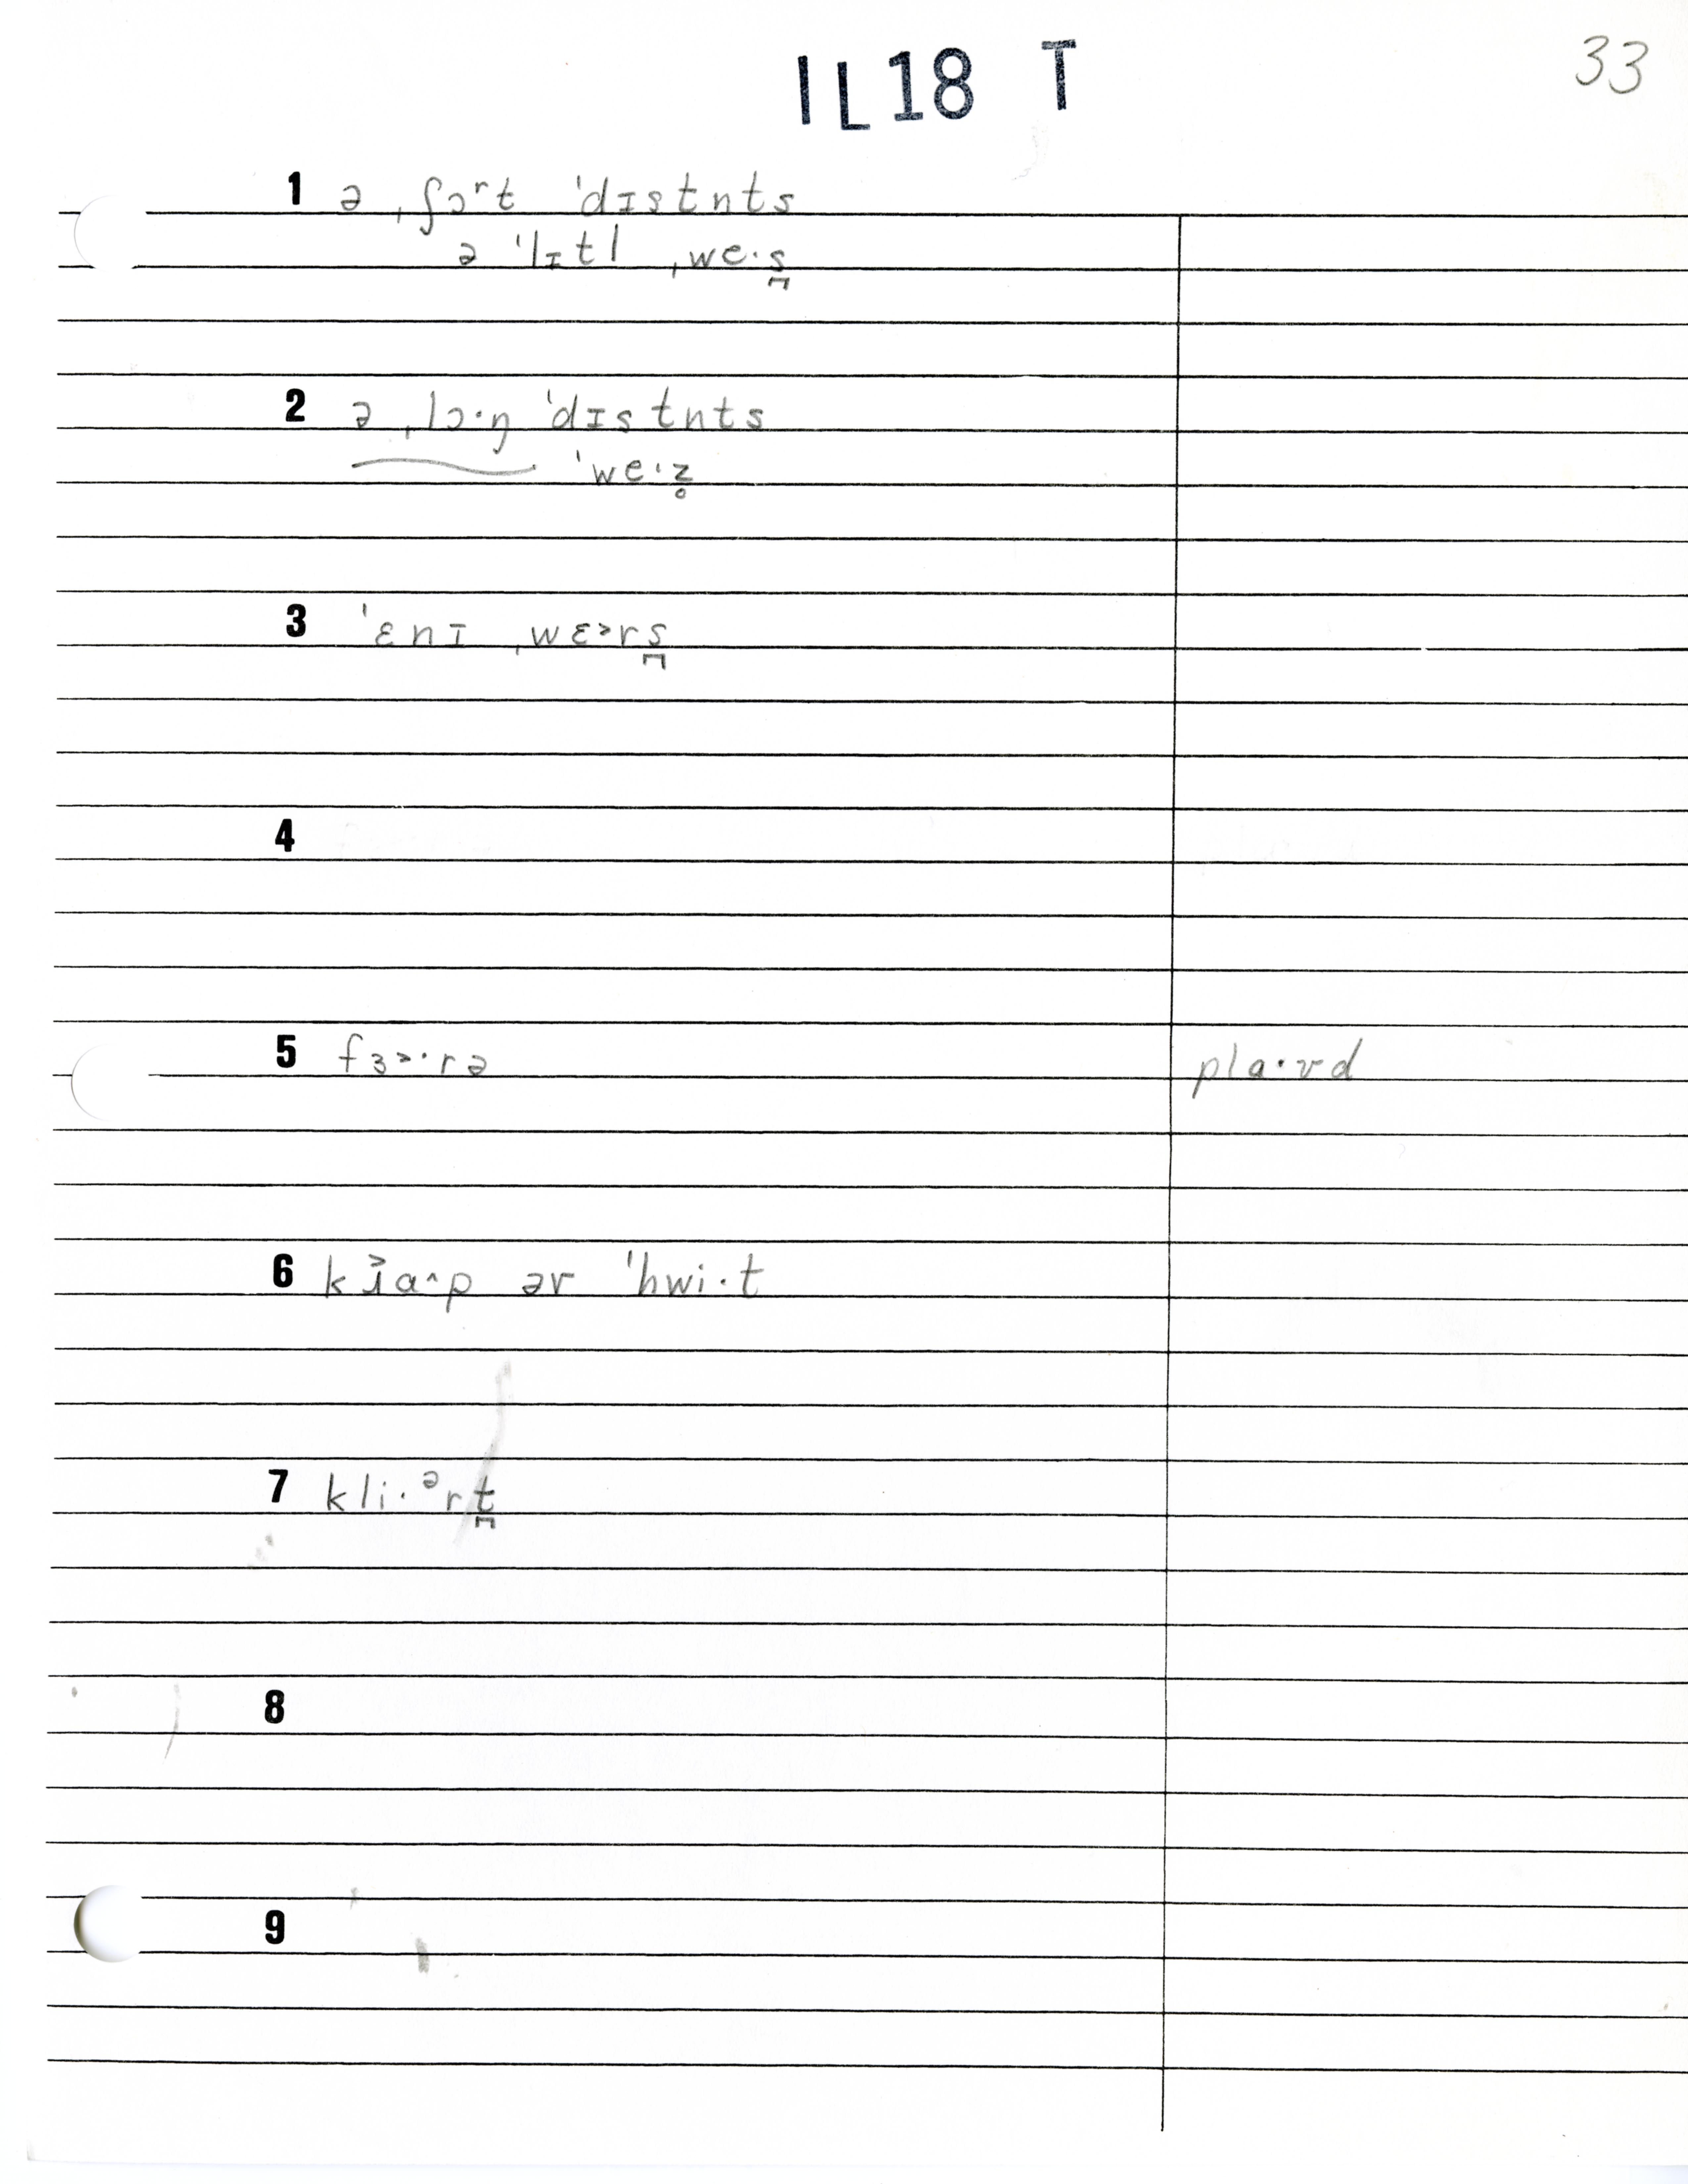 IL18 T
33
1 ə ˌʃɔʳt ˈdɪstnts
ə ˈlɪtl ˌweˑs̬
2 ə ˌlɔˑŋ ˈdɪstnts
ˈweˑz̥
3 ˈɛnɪ ˌwɛ˃rs̬
4
5 fɜ˃ˑrə plaˑʊd
6 ər ˈhwiˑt
7 kliˑᵊrt̬
8
9